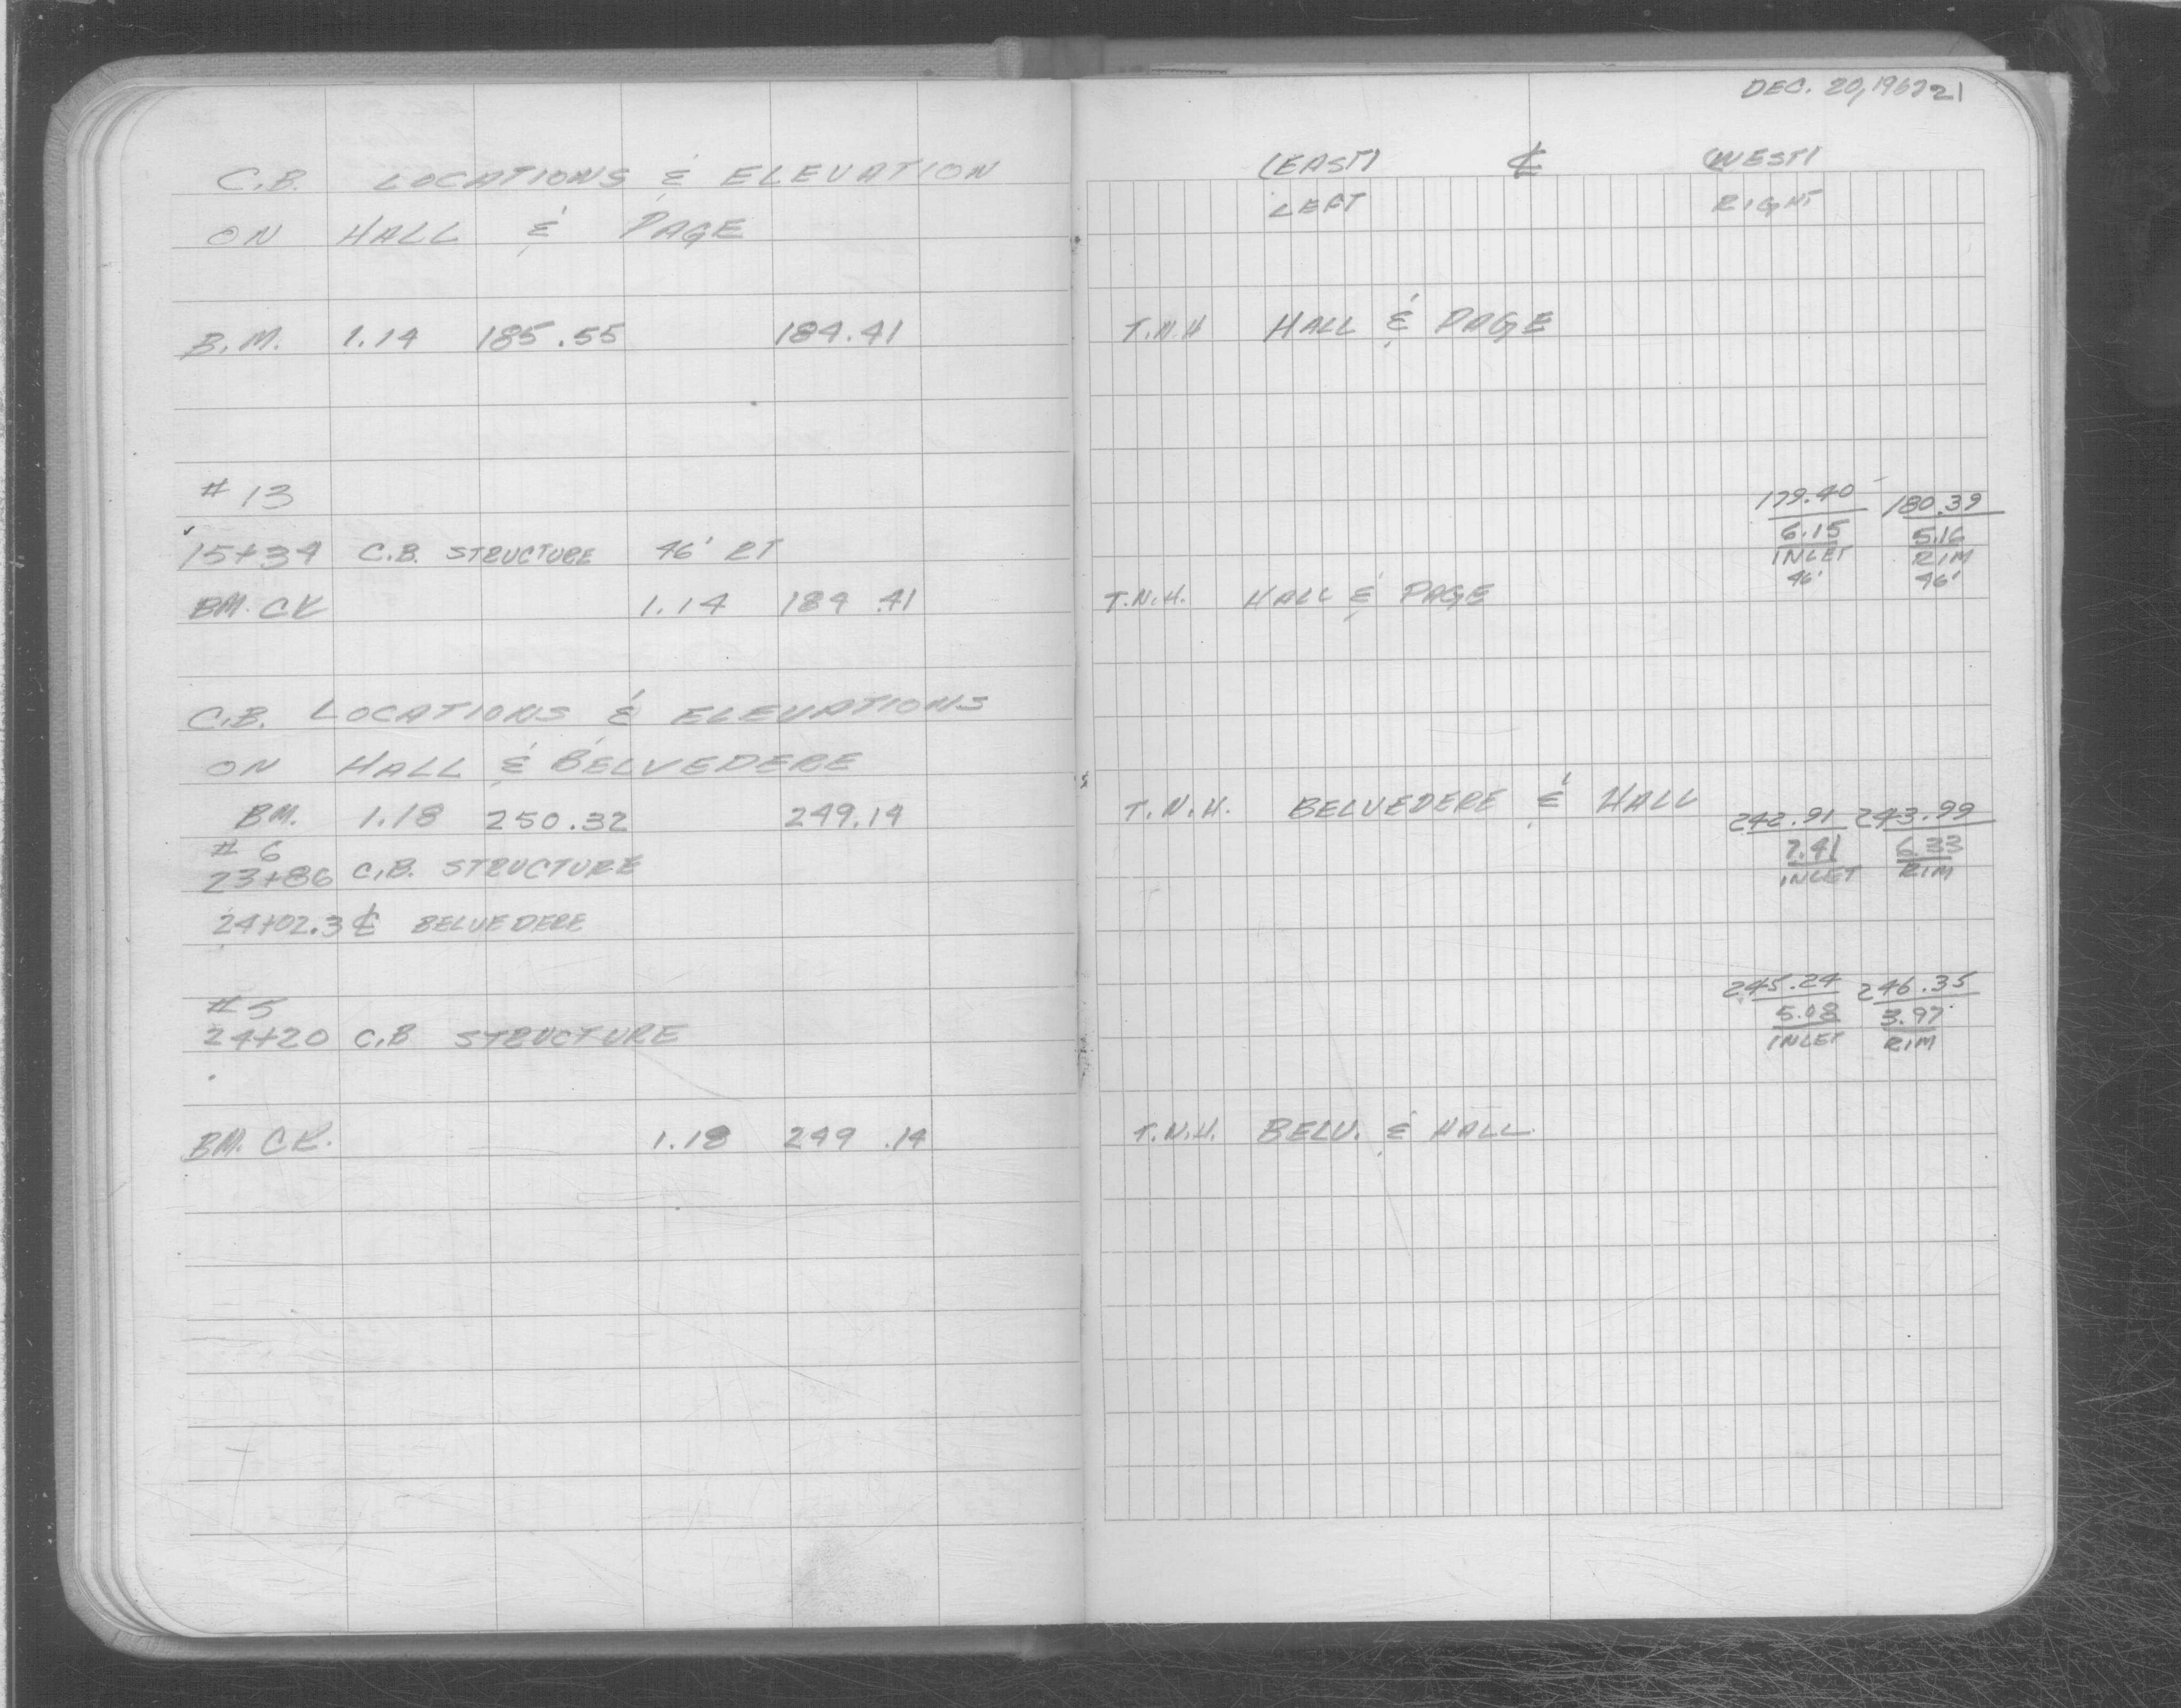 C.B. LOCATIONS & ELEVATION
ON HALL & PAGE
B.M. 1.14 185.55 184.41
# 13
15+34 C.B. STRUCTURE 46' RT
BM. CK 1.14 184.41
C.B. LOCATIONS & ELEVATIONS
ON HALL & BELVEDERE
BM. 1.18 250.32 249.14
# 6
23+86 C.B. STRUCTURE
24+02.3 ℄ BELVEDERE
#5
24+20 C.B STRUCTURE
BM. CK. 1.18 249.14
DEC. 20, 1967 21
(EAST) ℄ (WEST)
LEFT RIGHT
T.N.H HALL & PAGE
179.40 180.39
6.15 5.16
INLET RIM
46' 46'
T.N.H. HALL & PAGE
T.N.H. BELVEDERE & HALL
242.91 243.99
7.41 6.33
INLET RIM
245.24 246.35
5.08 3.97
INLET RIM
T.N.H. BELV. & HALL